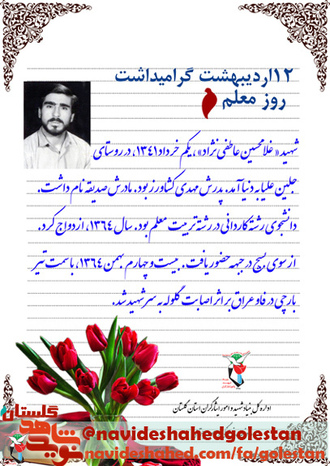 ۱۲اردیبهشت گرامیداشت
روز معلم
شهید «غلامحسین عاطفی‌نژاد»، یکم خرداد ۱۳۴۱، در روستای
جلین علیا به دنیا آمد. پدرش مهدی کشاورز بود. مادرش صدیقه نام داشت.
دانشجوی رشته کاردانی در رشته تربیت معلم بود. سال ۱۳۶۴، ازدواج کرد.
از سوی بسیج در جبهه حضور یافت. بیست و چهارم بهمن ۱۳۶۴، با سمت تیر
بارچی در فاو عراق بر اثر اصابت گلوله به سر شهید شد.
اداره کل بنیاد شهید و امور ایثارگران استان گلستان
گلستان
نوید شاهد
@navideshahedgolestan
navideshahed.com/fa/golestan